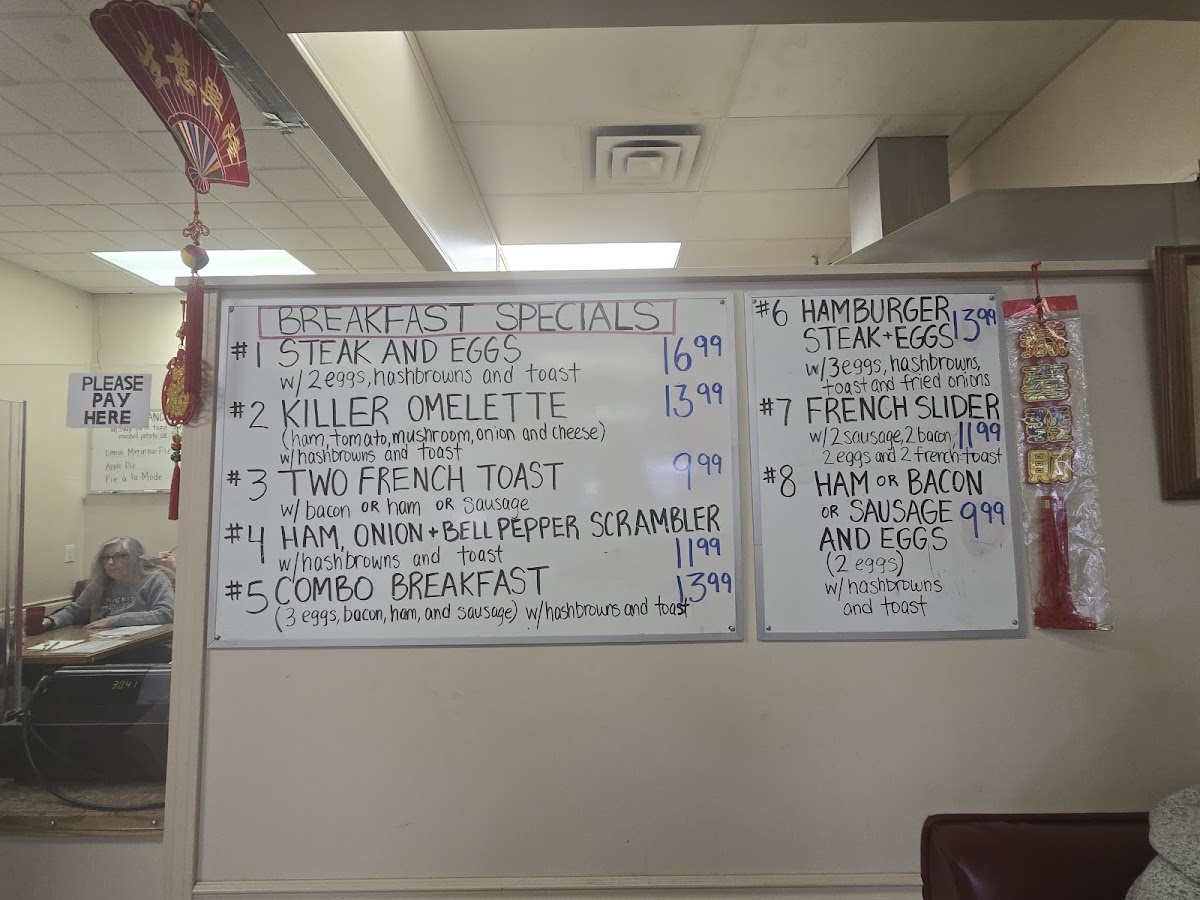 生意興隆
PLEASE
PAY
HERE
mashed potato
Lemon Meringue Pie
Apple Pie
Pie à la Mode
30.41
BREAKFAST SPECIALS
#1 STEAK AND EGGS 16.99
w/ 2 eggs, hashbrowns and toast
#2 KILLER OMELETTE 13.99
(ham, tomato, mushroom, onion and cheese)
w/ hashbrowns and toast
#3 TWO FRENCH TOAST 9.99
w/ bacon OR ham OR sausage
#4 HAM, ONION + BELL PEPPER SCRAMBLER
w/ hashbrowns and toast 11.99
#5 COMBO BREAKFAST 13.99
(3 eggs, bacon, ham, and sausage) w/ hashbrowns and toast
#6 HAMBURGER 13.99
STEAK + EGGS
w/ 3 eggs, hashbrowns,
toast and fried onions
#7 FRENCH SLIDER
w/ 2 sausage, 2 bacon, 11.99
2 eggs and 2 french toast
#8 HAM OR BACON
OR SAUSAGE 9.99
AND EGGS
(2 eggs)
w/ hashbrowns
and toast
恭
喜
發
財